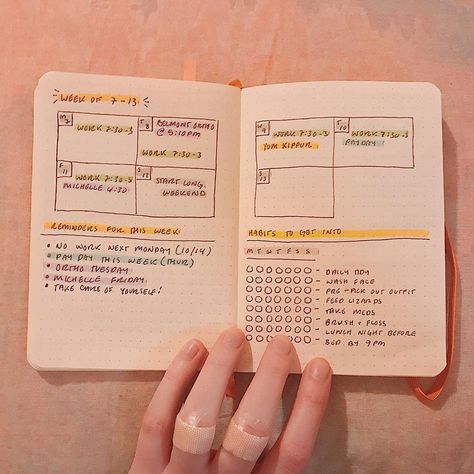 WEEK OF 7-13
M 7
WORK 7:30-3
T 8
BELMONT ORTHO
@ 5:10PM
WORK 7:30-3
F 11
WORK 7:30-3
MICHELLE 4:30
S 12
START LONG
WEEKEND
REMINDERS FOR THIS WEEK
• NO WORK NEXT MONDAY (10/14)
• PAY DAY THIS WEEK (THUR)
• ORTHO TUESDAY
• MICHELLE FRIDAY
• TAKE CARE OF YOURSELF!
W 9
WORK 7:30-3
YOM KIPPUR
T 10
WORK 7:30-3
PAYDAY
S 13
HABITS TO GET INTO
M T W T F S S
- DAILY TIDY
- WASH FACE
- PRE-PICK OUT OUTFIT
- FEED LIZARDS
- TAKE MEDS
- BRUSH + FLOSS
- LUNCH NIGHT BEFORE
- BED BY 9PM